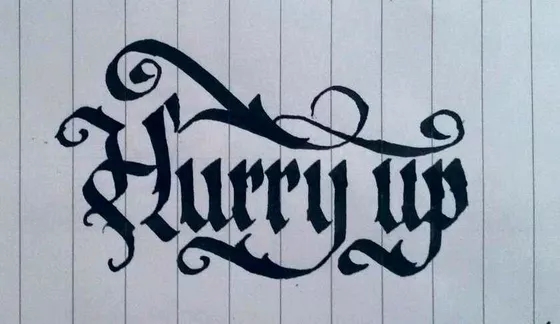 Hurry up